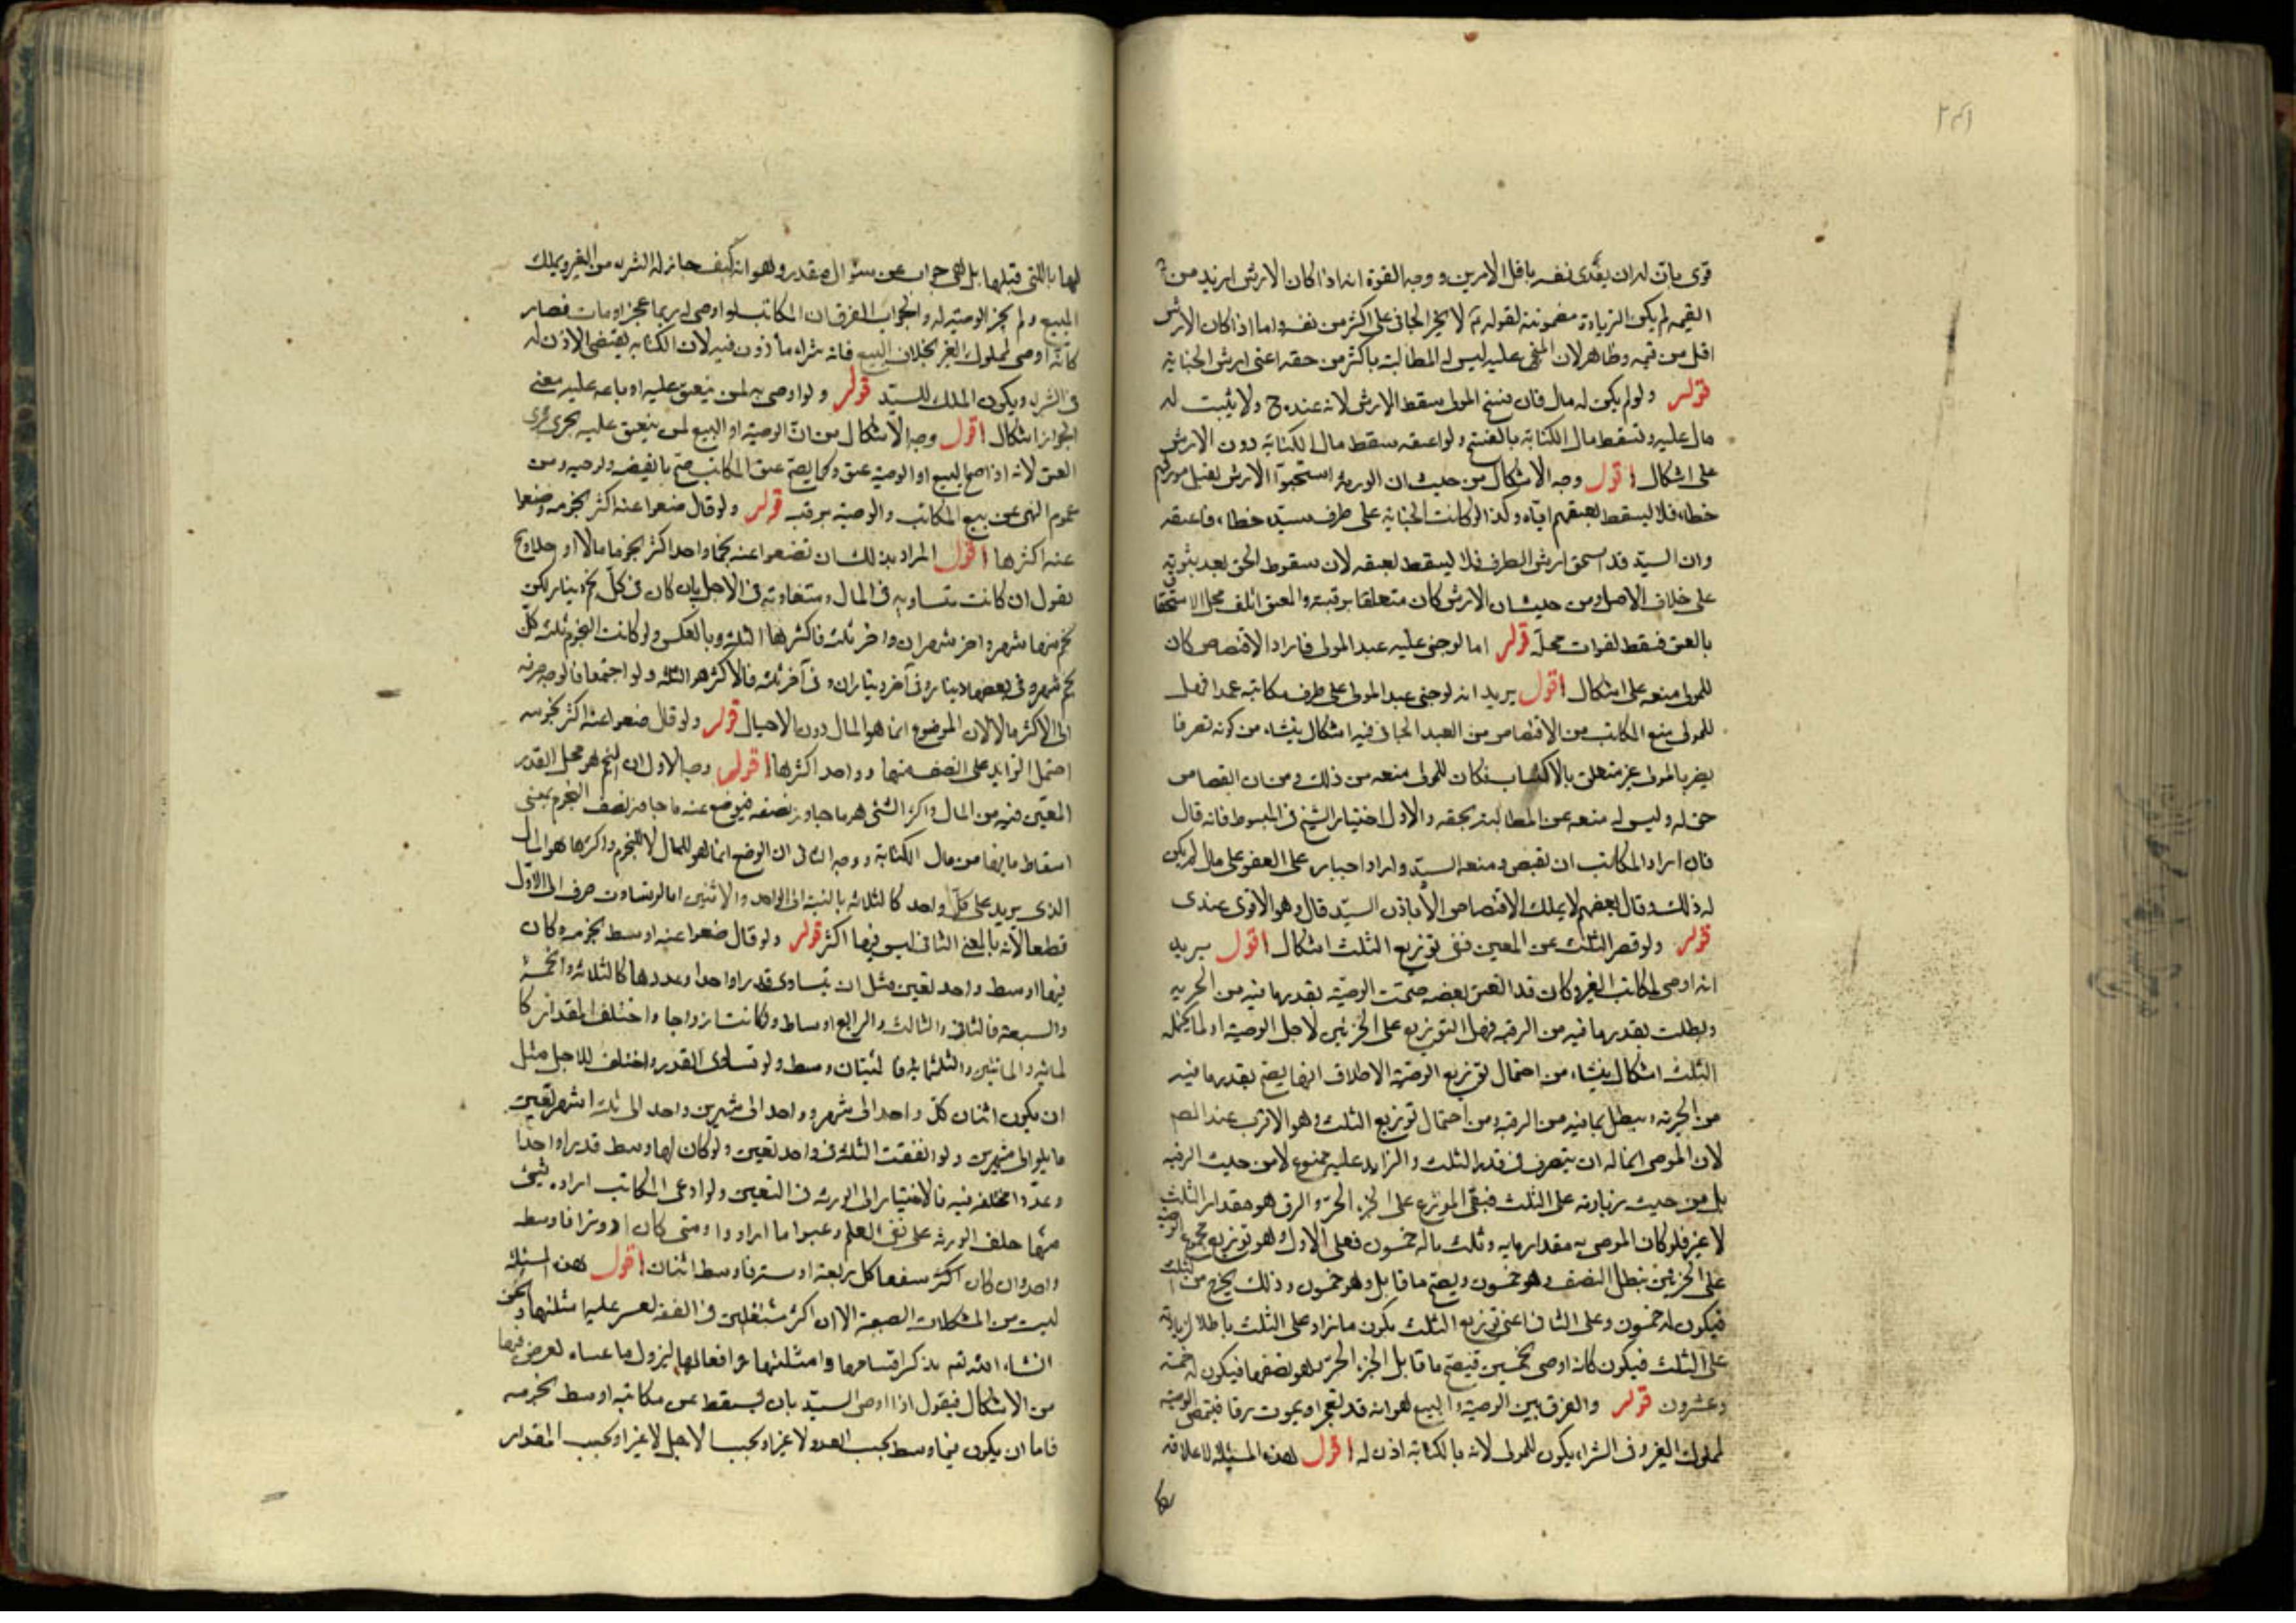 قوى بان له ان يفدى نفسه باقل الامرين ووجه القوة انه اذا كان الارش ازيد من
القيمة لم يكن الزيادة مضمونة لقوله لا يجنى الجانى على اكثر من نفسه واما اذا كان الارش
اقل من قيمه وظاهر لان المجنى عليه ليس له المطالبة باكثر من حقه اعنى ارش الجناية
قوله ولو لم يكن له مال فان فسخ المولى سقط الارش لانه عنده ح ولا يثبت له
مال عليه وتسقط مال الكتابة بالفسخ ولو اعتقه سقط مال الكتابة دون الارش
على اشكال اقول وجه الاشكال من حيث ان الورثة استحقوا الارش بقتل مورثهم
خطاء فلا يسقط بعتقهم اياه وكذا لو كانت الجناية على طرف سيده خطاء فاعتقه
وان السيد قد استحق ارش الطرف فلا يسقط بعتقه لان سقوط الحق بعد ثبوته
على خلاف الاصل ومن حيث ان الارش كان متعلقا برقبته والعتق اتلف محل الاستحقاق
بالعتق فسقط لفوات محله قوله اما لو جنى عليه عبد المولى فاراد الاقتصاص كان
للمولى منعه على اشكال اقول يريد انه لو جنى عبد المولى على طرف مكاتبه عمدا فهل
للمولى منع المكاتب من الاقتصاص من العبد الجانى فيه اشكال ينشاء من كونه تصرفا
يضر بالمولى غير متعلق بالاكتساب فكان للمولى منعه من ذلك ومن ان القصاص
حق له وليس له منعه عن المطالبة بحقه والاول اختيار الشيخ فى المبسوط فانه قال
فان اراد المكاتب ان يقبض ومنعه السيد واراد اجباره على العفو على مال لم يكن
له ذلك وقال بعضهم لا يملك الاقتصاص الا باذن السيد قال وهو الاقوى عندى
قوله ولو قصر الثلث عن المعين ففى توزيع الثلث اشكال اقول يريد
انه اوصى لمكاتب الغير وكان قد انعتق بعضه صحت الوصية بقدر ما فيه من الحرية
وبطلت بقدر ما فيه من الرقية فهل التوزيع على الجزئين لاجل الوصية او لما يحتمله
الثلث اشكال ينشاء من احتمال توزيع الوصية الاطلاق انها يصح بقدر ما فيه
من الحرية ويبطل بما فيه من الرقية ومن احتمال توزيع الثلث وهو الاقرب عند المص
لان الموصى انما له ان يتصرف فى قدر الثلث والزايد عليه ممنوع لا من حيث الرقية
بل من حيث زيادته على الثلث فبقى الموزع على الجزء الحر والرق هو مقدار الثلث
لا غير فلو كان الموصى به مقدار مايه وثلث ماله خمسون فعلى الاول وهو توزيع مجموع الوصية
على الجزئين يبطل النصف وهو خمسون ويصح ما قابل وهو خمسون وذلك يخرج من الثلث
فيكون له خمسون وعلى الثانى اعنى توزيع الثلث يكون ما زاد على الثلث باطلا لزيادته
على الثلث فيكون كانه اوصى بخمسين فيصح ما قابل الجزء الحر وهو نصفها فيكون له خمسة
وعشرون قوله والفرق بين الوصية والبيع هو انه قد يعجز او يموت رقا فيمضى الوصية
لمملوك الغير وفى الشراء يكون للمولى لانه بالكتابة اذن له اقول هذه المسئلة لا علاقة
لها
لها باللتى قبلها بل هى جواب عن سؤال مقدر وهو انه كيف جاز له الشرى من الغير ويملك
المبيع ولم يجز الوصية له والجواب الفرق ان المكاتب لو اوصى له ربما عجز او مات فصار
كانه اوصى لمملوك الغير بخلاف البيع فانه شراء مأذون فيه لان الكتابة يقتضى الاذن له
فى الشرى ويكون الملك للسيد قوله ولو اوصى به لمن ينعتق عليه او باعه عليه معنى
الجواز اشكال اقول وجه الاشكال من ان الوصية او البيع لمن ينعتق عليه يجرى مجرى
العتق لانه اذا صح البيع او الوصية عتق وكما يصح عتق المكاتب صح ما يقتضيه ومن
عموم النهى عن بيع المكاتب والوصية برقبته قوله ولو قال ضعوا عنه اكثر نجومه وضعوا
عنه اكثرها اقول المراد بذلك ان تضعوا عنه نجما واحدا اكثر نجوما مالا او اجلا وح
نقول ان كانت متساويه فى المال ومتفاوته فى الاجل بان كان فى كل نجم دينار لكن
نجم منها شهر واخر شهران واخر ثلثه فاكثرها الثلثه وبالعكس ولو كانت النجوم ثلثه كل
نجم شهر وفى بعضها دينار وفى آخر ديناران وفى آخر ثلثه فالاكثر هو الثلثه ولو اجتمعا فالوجه صرفه
الى الاكثر مالا لان الموضوع انما هو المال دون الاجال قوله ولو قال ضعوا عنه اكثر نجومه
احتمل الزايد على النصف منها وواحد اكثرها اقول وجه الاول ان النجم هو محل القدر
المعين فيه من المال واكثر الشئ هو ما جاوز نصفه فيوضع عنه ما جاوز نصف النجوم بمعنى
اسقاط ما يفها من مال الكتابة ووجه الثانى ان الوضع انما هو للمال لا للنجوم واكثرها هو المال
الذى يزيد على كل واحد كالثلاثه بالنسبة الى الواحد والاثنين اما لو تساوت صرف الى الاول
قطعا لانه بالمعنى الثانى ليس فيها اكثر قوله ولو قال ضعوا عنه اوسط نجومه وكان
فيها اوسط واحد تعين مثل ان يتساوى قدرا واحدا وعددها كالثلاثه والخمسة
والسبعة فالثانى والثالث والرابع اوساط ولو كانت ازواجا واختلف المقدار كا
لمائه والمائتين والثلثمائه فالمئتان وسط ولو تساوى القدر واختلف الاجل مثل
ان يكون اثنان كل واحد الى شهر وواحد الى شهرين وواحد الى ثلثه اشهر تعين
ما يلو الى شهرين ولو اتفقت الثلثه فى واحد تعين ولو كان لها وسط قدرا واحدا
وعددا مختلفه فيه فالاختيار الى الورثه فى التعين ولو ادعى المكاتب اراده شئ
منها حلف الورثه على نفى العلم وعينوا ما ارادوا ومتى كان وترا فاوسطه
واحد وان كان اكثر شفعا كاربعة او ستة فاوسطه اثنان اقول هذه المسئلة
ليست من المشكلات الصعبة الا ان اكثر مشتغلين فى الفقه لعسر عليه امثلتها ونحن
انشاء الله تم نذكر اقسامها وامثلتها وافعالها ليزول ما عساه يعرض فيها
من الاشكال فيقول اذا اوصى السيد بان يسقط عن مكاتبه اوسط نجومه
فاما ان يكون فيها وسط بحسب العدد لا غير او بحسب الاجل لا غير او بحسب المقدار